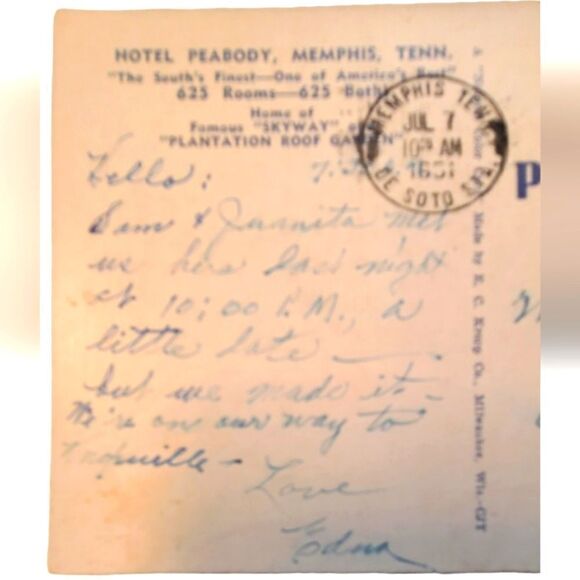 HOTEL PEABODY, MEMPHIS, TENN.
"The South's Finest—One of America's Best"
625 Rooms—625 Baths
Home of
Famous "SKYWAY" and
"PLANTATION ROOF GARDEN"
MEMPHIS TENN.
JUL 7
10 AM
1951
DE SOTO STA.
P
Hello:
Sam & Juanita met
us here last night
at 10:00 P.M., a
little late —
but we made it –
We're on our way to
Knoxville –
Love
Edna
Made by E. C. Kropp Co., Milwaukee, Wis.